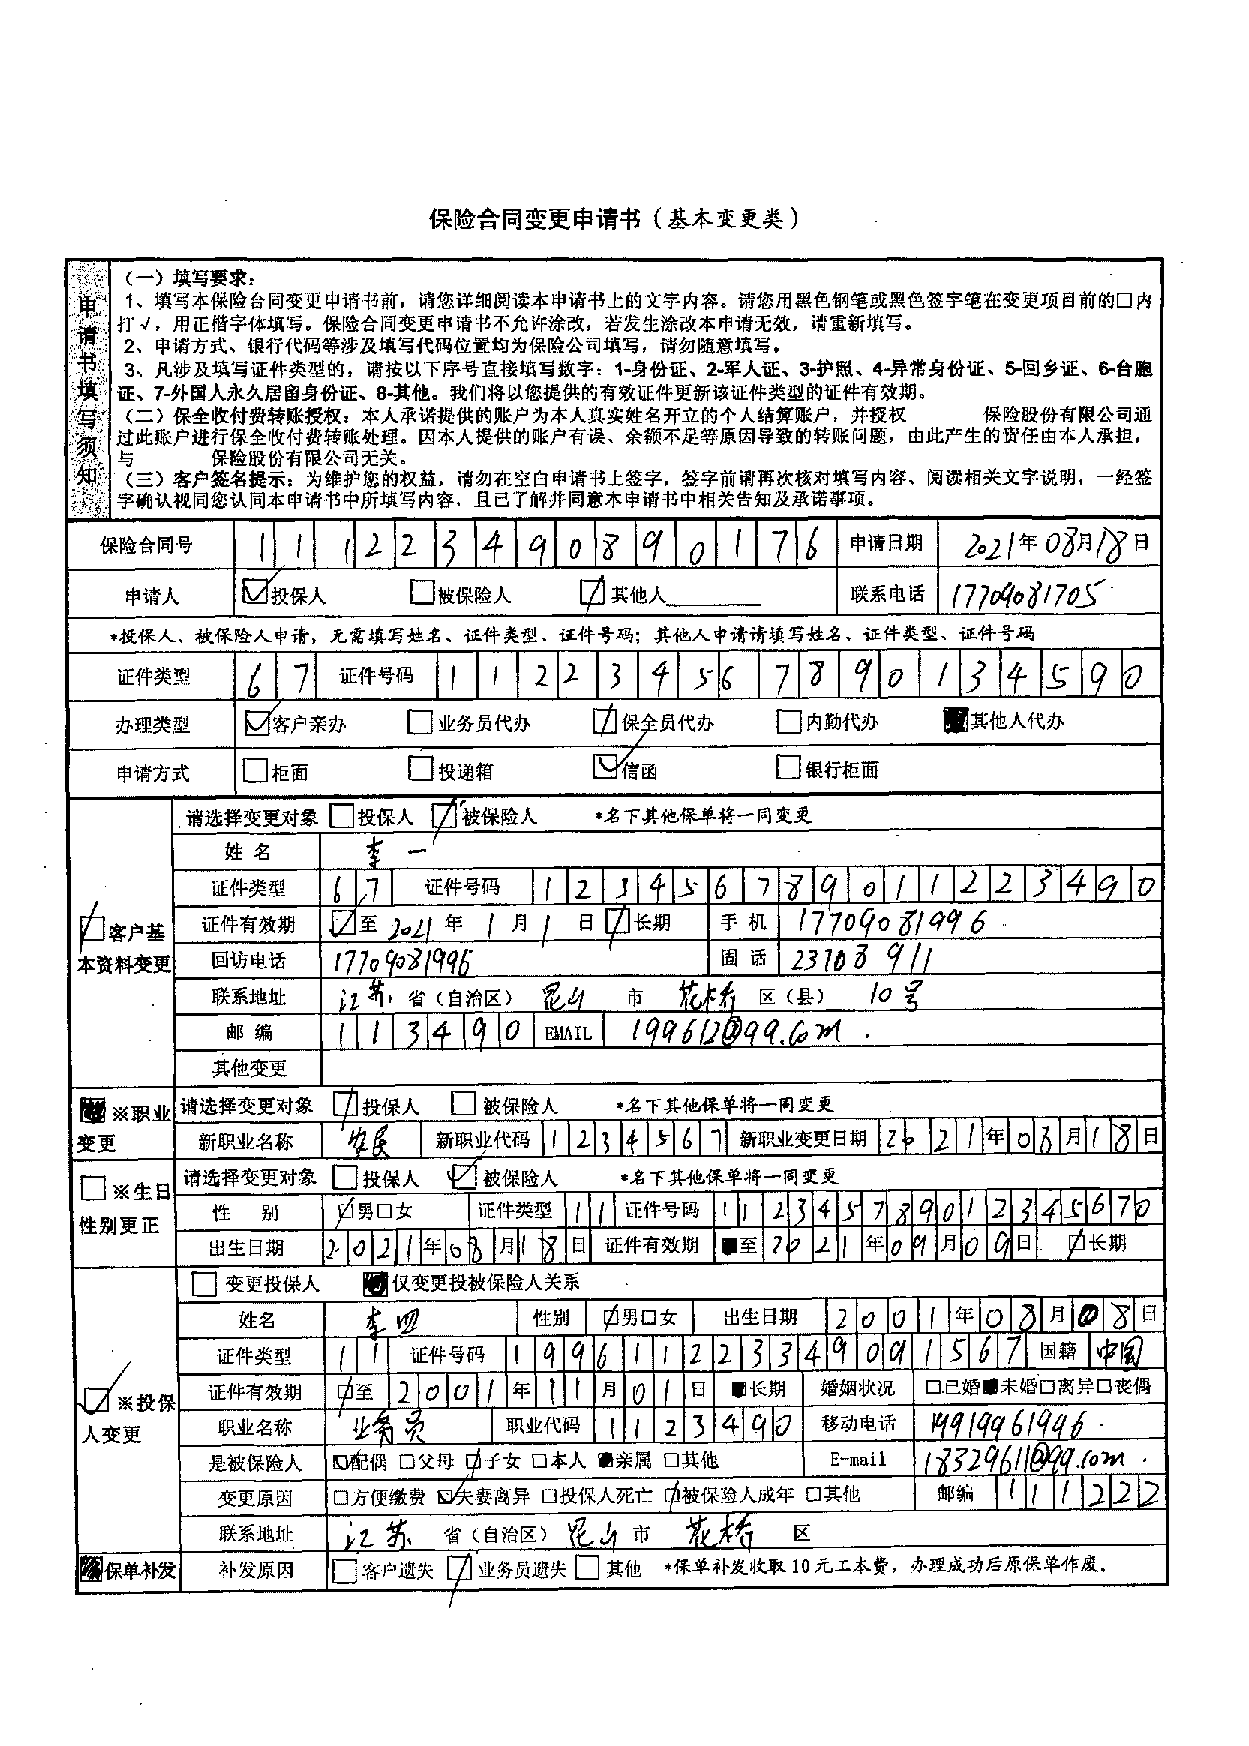 保险合同变更申请书（基本变更类）
申请书填写须知
（一）填写要求：
1、填写本保险合同变更申请书前，请您详细阅读本申请书上的文字内容。请您用黑色钢笔或黑色签字笔在变更项目前的□内
打√，用正楷字体填写。保险合同变更申请书不允许涂改，若发生涂改本申请无效，请重新填写。
2、申请方式、银行代码等涉及填写代码位置均为保险公司填写，请勿随意填写。
3、凡涉及填写证件类型的，请按以下序号直接填写数字：1-身份证、2-军人证、3-护照、4-异常身份证、5-回乡证、6-台胞
证、7-外国人永久居留身份证、8-其他。我们将以您提供的有效证件更新该证件类型的证件有效期。
（二）保全收付费转账授权：本人承诺提供的账户为本人真实姓名开立的个人结算账户，并授权 保险股份有限公司通
过此账户进行保全收付费转账处理。因本人提供的账户有误、余额不足等原因导致的转账问题，由此产生的责任由本人承担，
与 保险股份有限公司无关。
（三）客户签名提示：为维护您的权益，请勿在空白申请书上签字，签字前请再次核对填写内容、阅读相关文字说明，一经签
字确认视同您认同本申请书中所填写内容，且已了解并同意本申请书中相关告知及承诺事项。
保险合同号 111223490890176 申请日期 2021年08月18日
申请人 ☑投保人 □被保险人 ☑其他人 联系电话 17709081705
*投保人、被保险人申请，无需填写姓名、证件类型、证件号码；其他人申请请填写姓名、证件类型、证件号码
证件类型 67 证件号码 112234567890134590
办理类型 ☑客户亲办 □业务员代办 ☑保全员代办 □内勤代办 ■其他人代办
申请方式 □柜面 □投递箱 ☑信函 □银行柜面
☑客户基本资料变更
请选择变更对象 □投保人 ☑被保险人 *名下其他保单将一同变更
姓名 李一
证件类型 67 证件号码 123456789011223490
证件有效期 ☑至 2021年1月1日 ☑长期 手机 17709081996
回访电话 17709081996 固话 23708911
联系地址 江苏 省（自治区） 昆山 市 花桥 区（县） 10号
邮编 113490 EMAIL 199612@99.com
其他变更
■※职业变更
请选择变更对象 ☑投保人 □被保险人 *名下其他保单将一同变更
新职业名称 农民 新职业代码 1234567 新职业变更日期 2021年08月18日
□※生日性别更正
请选择变更对象 □投保人 ☑被保险人 *名下其他保单将一同变更
性别 ☑男□女 证件类型 11 证件号码 112345789012345670
出生日期 2021年08月18日 证件有效期 ■至2021年09月09日 ☑长期
☑※投保人变更
□变更投保人 ■仅变更投被保险人关系
姓名 李四 性别 ☑男□女 出生日期 2001年08月08日
证件类型 11 证件号码 199611223349091567 国籍 中国
证件有效期 ☑至2001年11月01日 ■长期 婚姻状况 □已婚■未婚□离异□丧偶
职业名称 业务员 职业代码 1123490 移动电话 14919961996
是被保险人 ☑配偶 □父母 ☑子女 □本人 ■亲属 □其他 E-mail 18329611@99.com
变更原因 □方便缴费 ☑夫妻离异 □投保人死亡 ☑被保险人成年 □其他 邮编 111222
联系地址 江苏 省（自治区） 昆山 市 花桥 区
■保单补发 补发原因 □客户遗失 ☑业务员遗失 □其他 *保单补发收取10元工本费，办理成功后原保单作废。